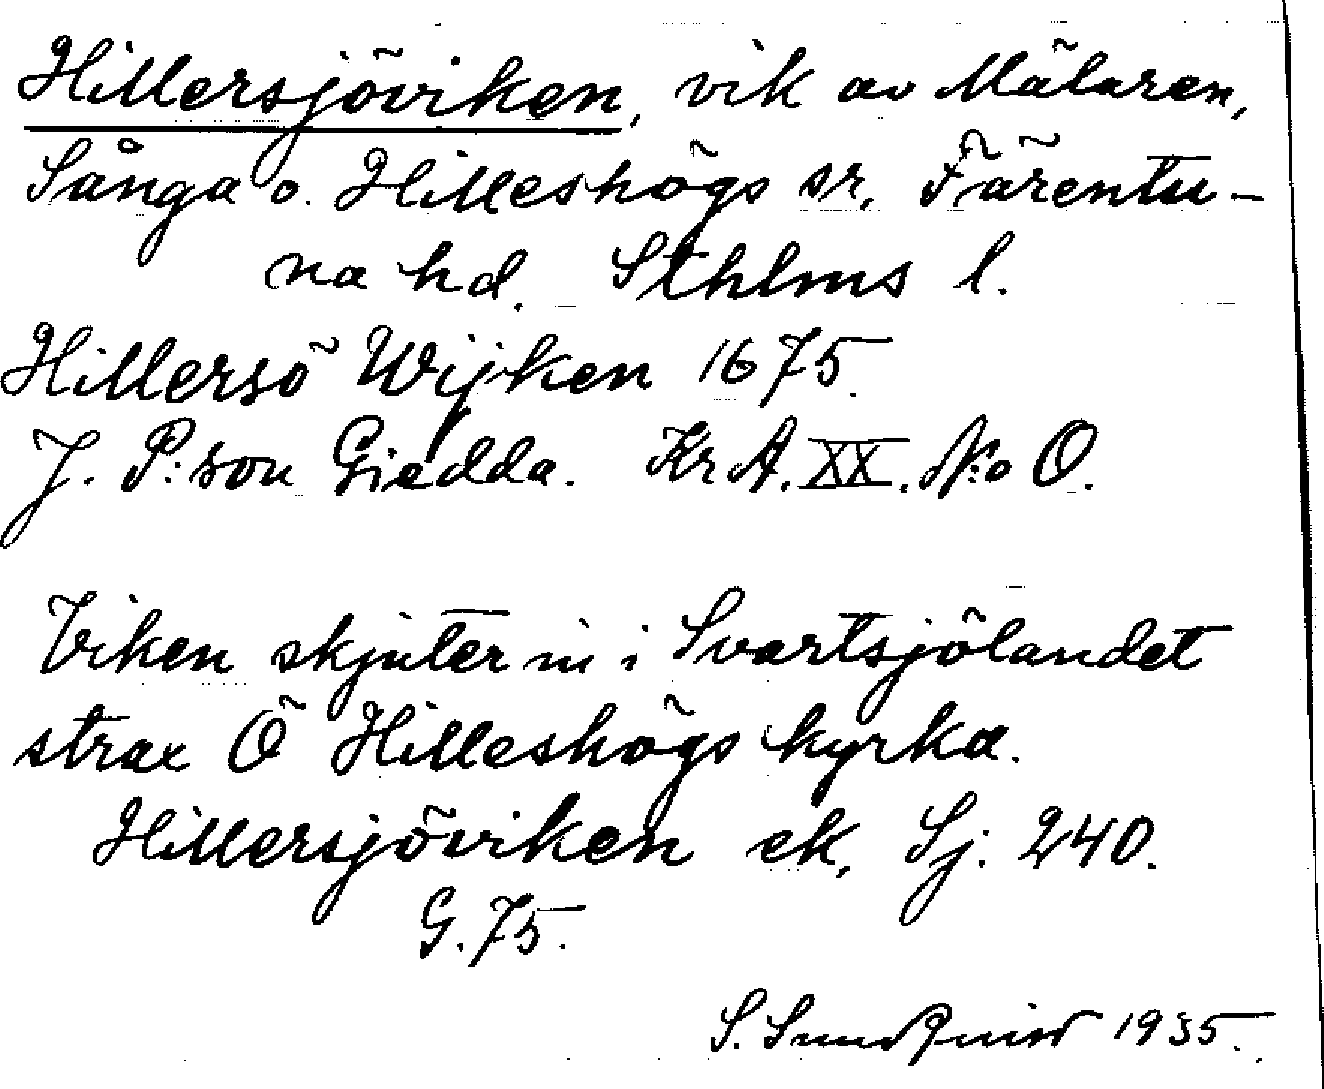 Hillersjöviken, vik av Mälaren,
Sånga o. Hilleshögs sr, Färentu-
na hd. Sthlms l.
Hillersö Wijken 1675.
J. P:son Giedda. Kr A. XX. N:o O.
Viken skjuter in i Svartsjölandet
strax Ö Hilleshögs kyrka.
Hillersjöviken ek. Sj. 240.
G. 75.
S. Sundquist 1935.